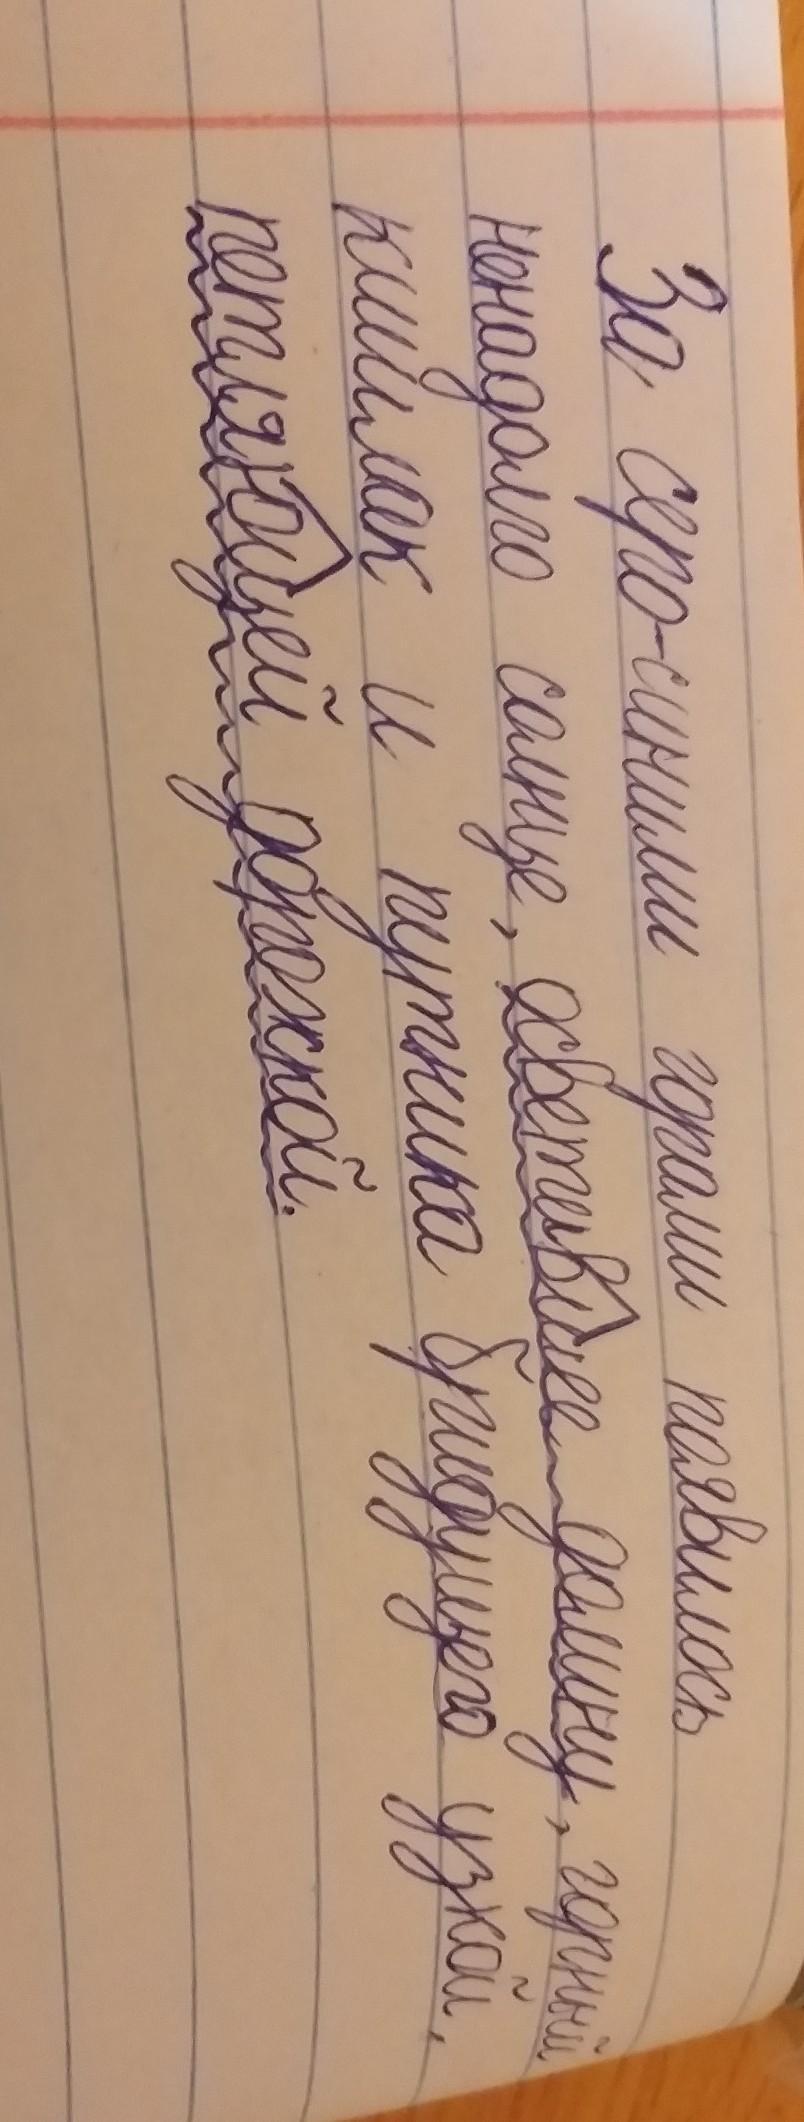 За серо-синими горами появилось
ненадолго солнце, осветившее долину, горный
кишлак и путника бридущего узкой,
петляющей дорожкой.